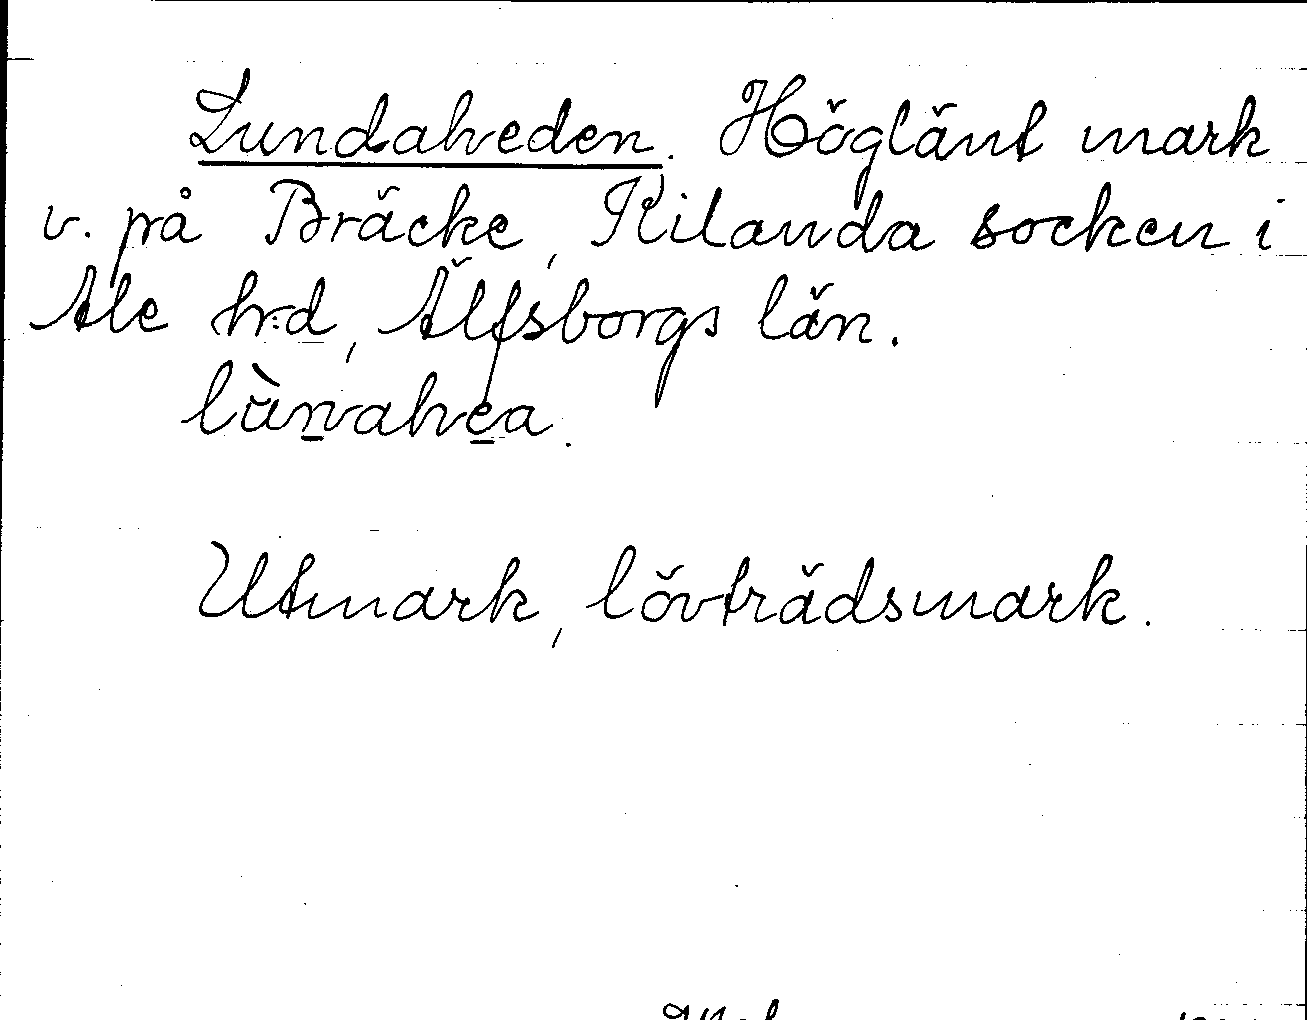 Lundaheden. Höglänt mark
v. på Bräcke, Kilanda socken i
Ale h:d, Älfsborgs län.
lùnahea.
Utmark, lövträdsmark.